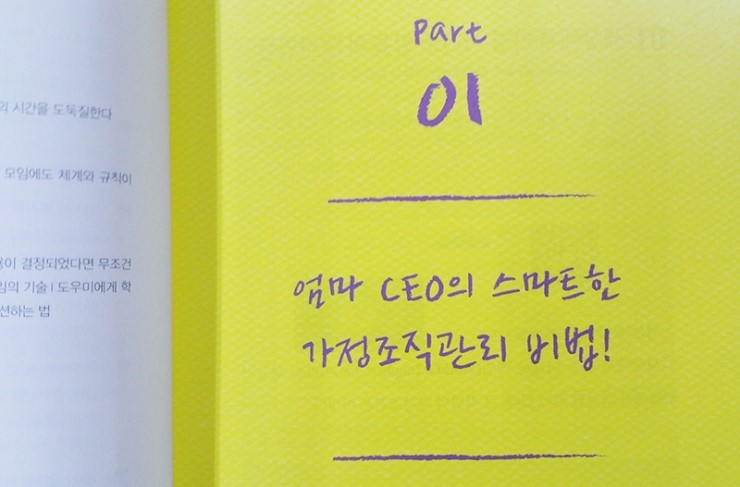 의 시간을 도둑질한다
모임에도 체계와 규칙이
이 결정되었다면 무조건
의 기술 | 도우미에게 학
션하는 법
Part
01
엄마 CEO의 스마트한
가정조직관리 비법!